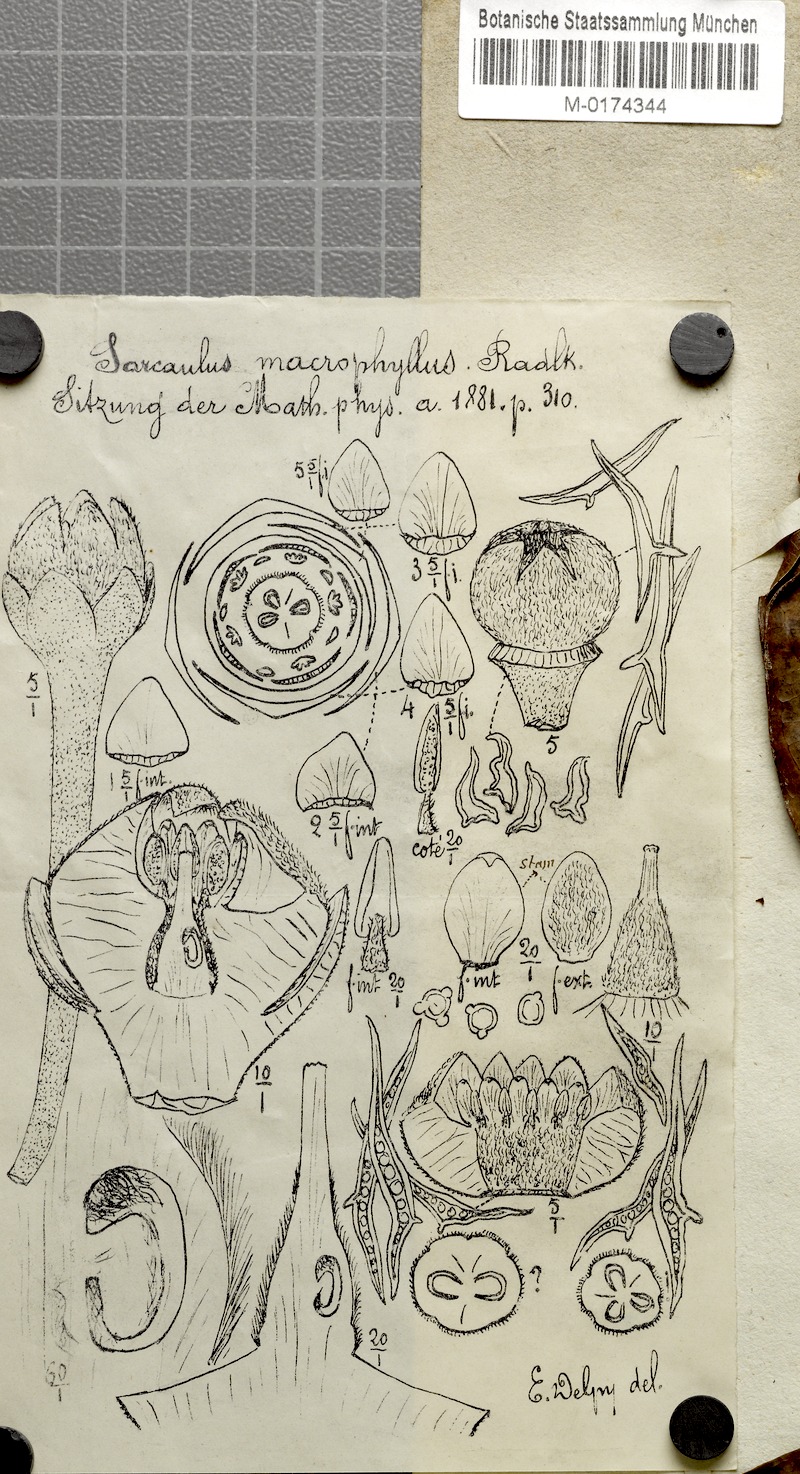 Botanische Staatssammlung München
M-0174344
Sarcaulus macrophyllus. Radlk.
Sitzung der Math. phys. a. 1881. p. 310.
5 5/1 f. i.
3 5/1 f. i.
5/1
4 5/1 f. i.
5
1 5/1 f. int.
2 5/1 f. int
coté 20/1
stam
f. int 20/1
f. int 20/1 f. ext.
10/1
10/1
5/1
?
20/1
60/1
E. Delpy del.